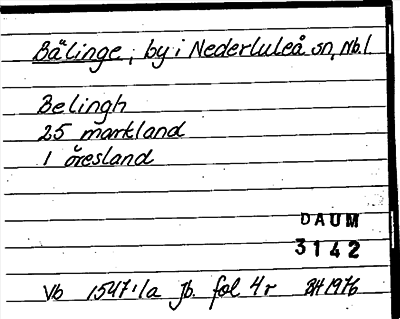 Bälinge, by i Nederluleå sn, Nb.l
Belingh
25 markland
1 öresland
DAUM
3142
Vb 1547:1a Jb. fol 4r BH 1976